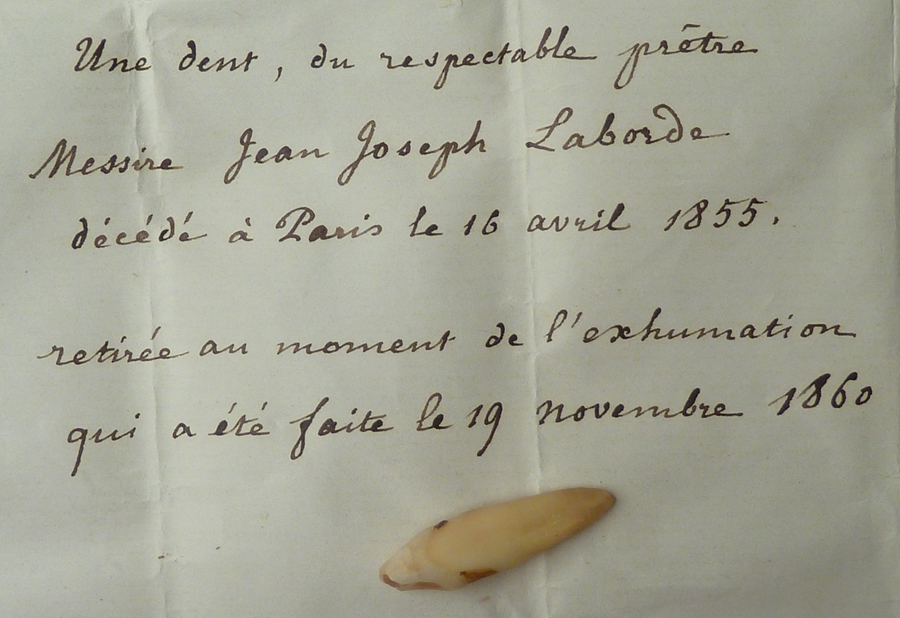 Une dent, du respectable prêtre
Messire Jean Joseph Laborde
décédé à Paris le 16 avril 1855.
retirée au moment de l'exhumation
qui a été faite le 19 novembre 1860